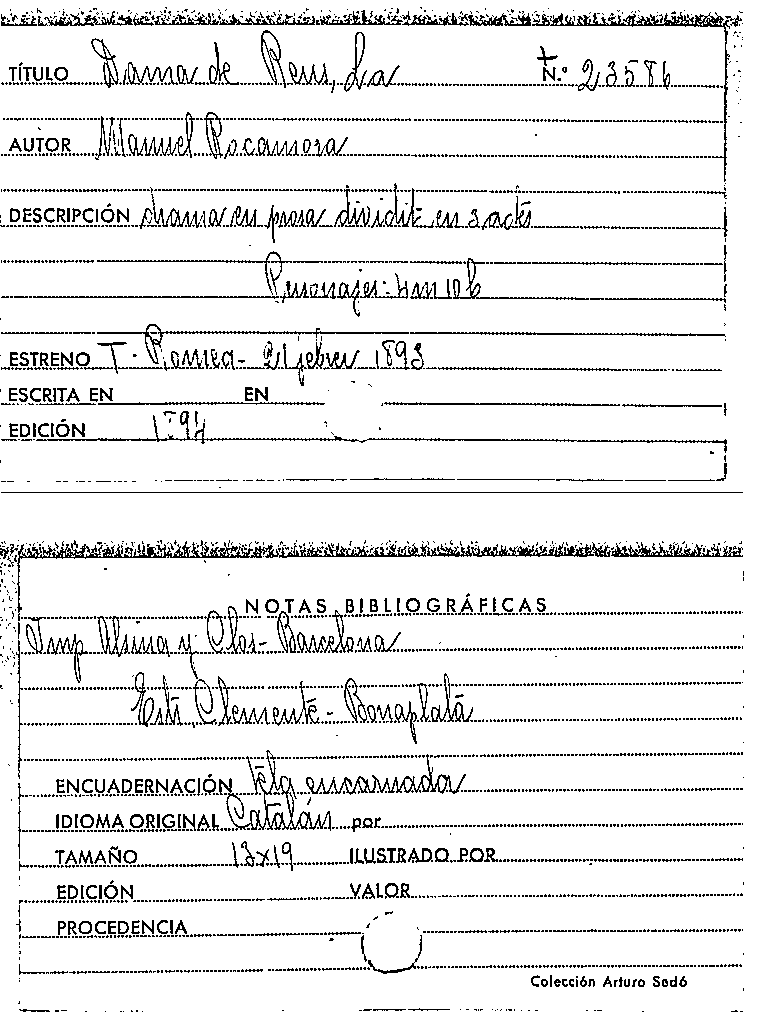 TÍTULO Dama de Reus, La N.º 23586
AUTOR Manuel Rocamora
DESCRIPCIÓN drama en prosa dividit en 3 actes
Personajes: 4m 10 h
ESTRENO T. Romea - 21 febrer 1893
ESCRITA EN EN
EDICIÓN 1894
NOTAS BIBLIOGRÁFICAS
Imp Alsina y Clos - Barcelona
Est. Clemente - Bonaplatá
ENCUADERNACIÓN tela encarnada
IDIOMA ORIGINAL Catalán por
TAMAÑO 13x19 ILUSTRADO POR
EDICIÓN VALOR
PROCEDENCIA
Colección Arturo Sedó